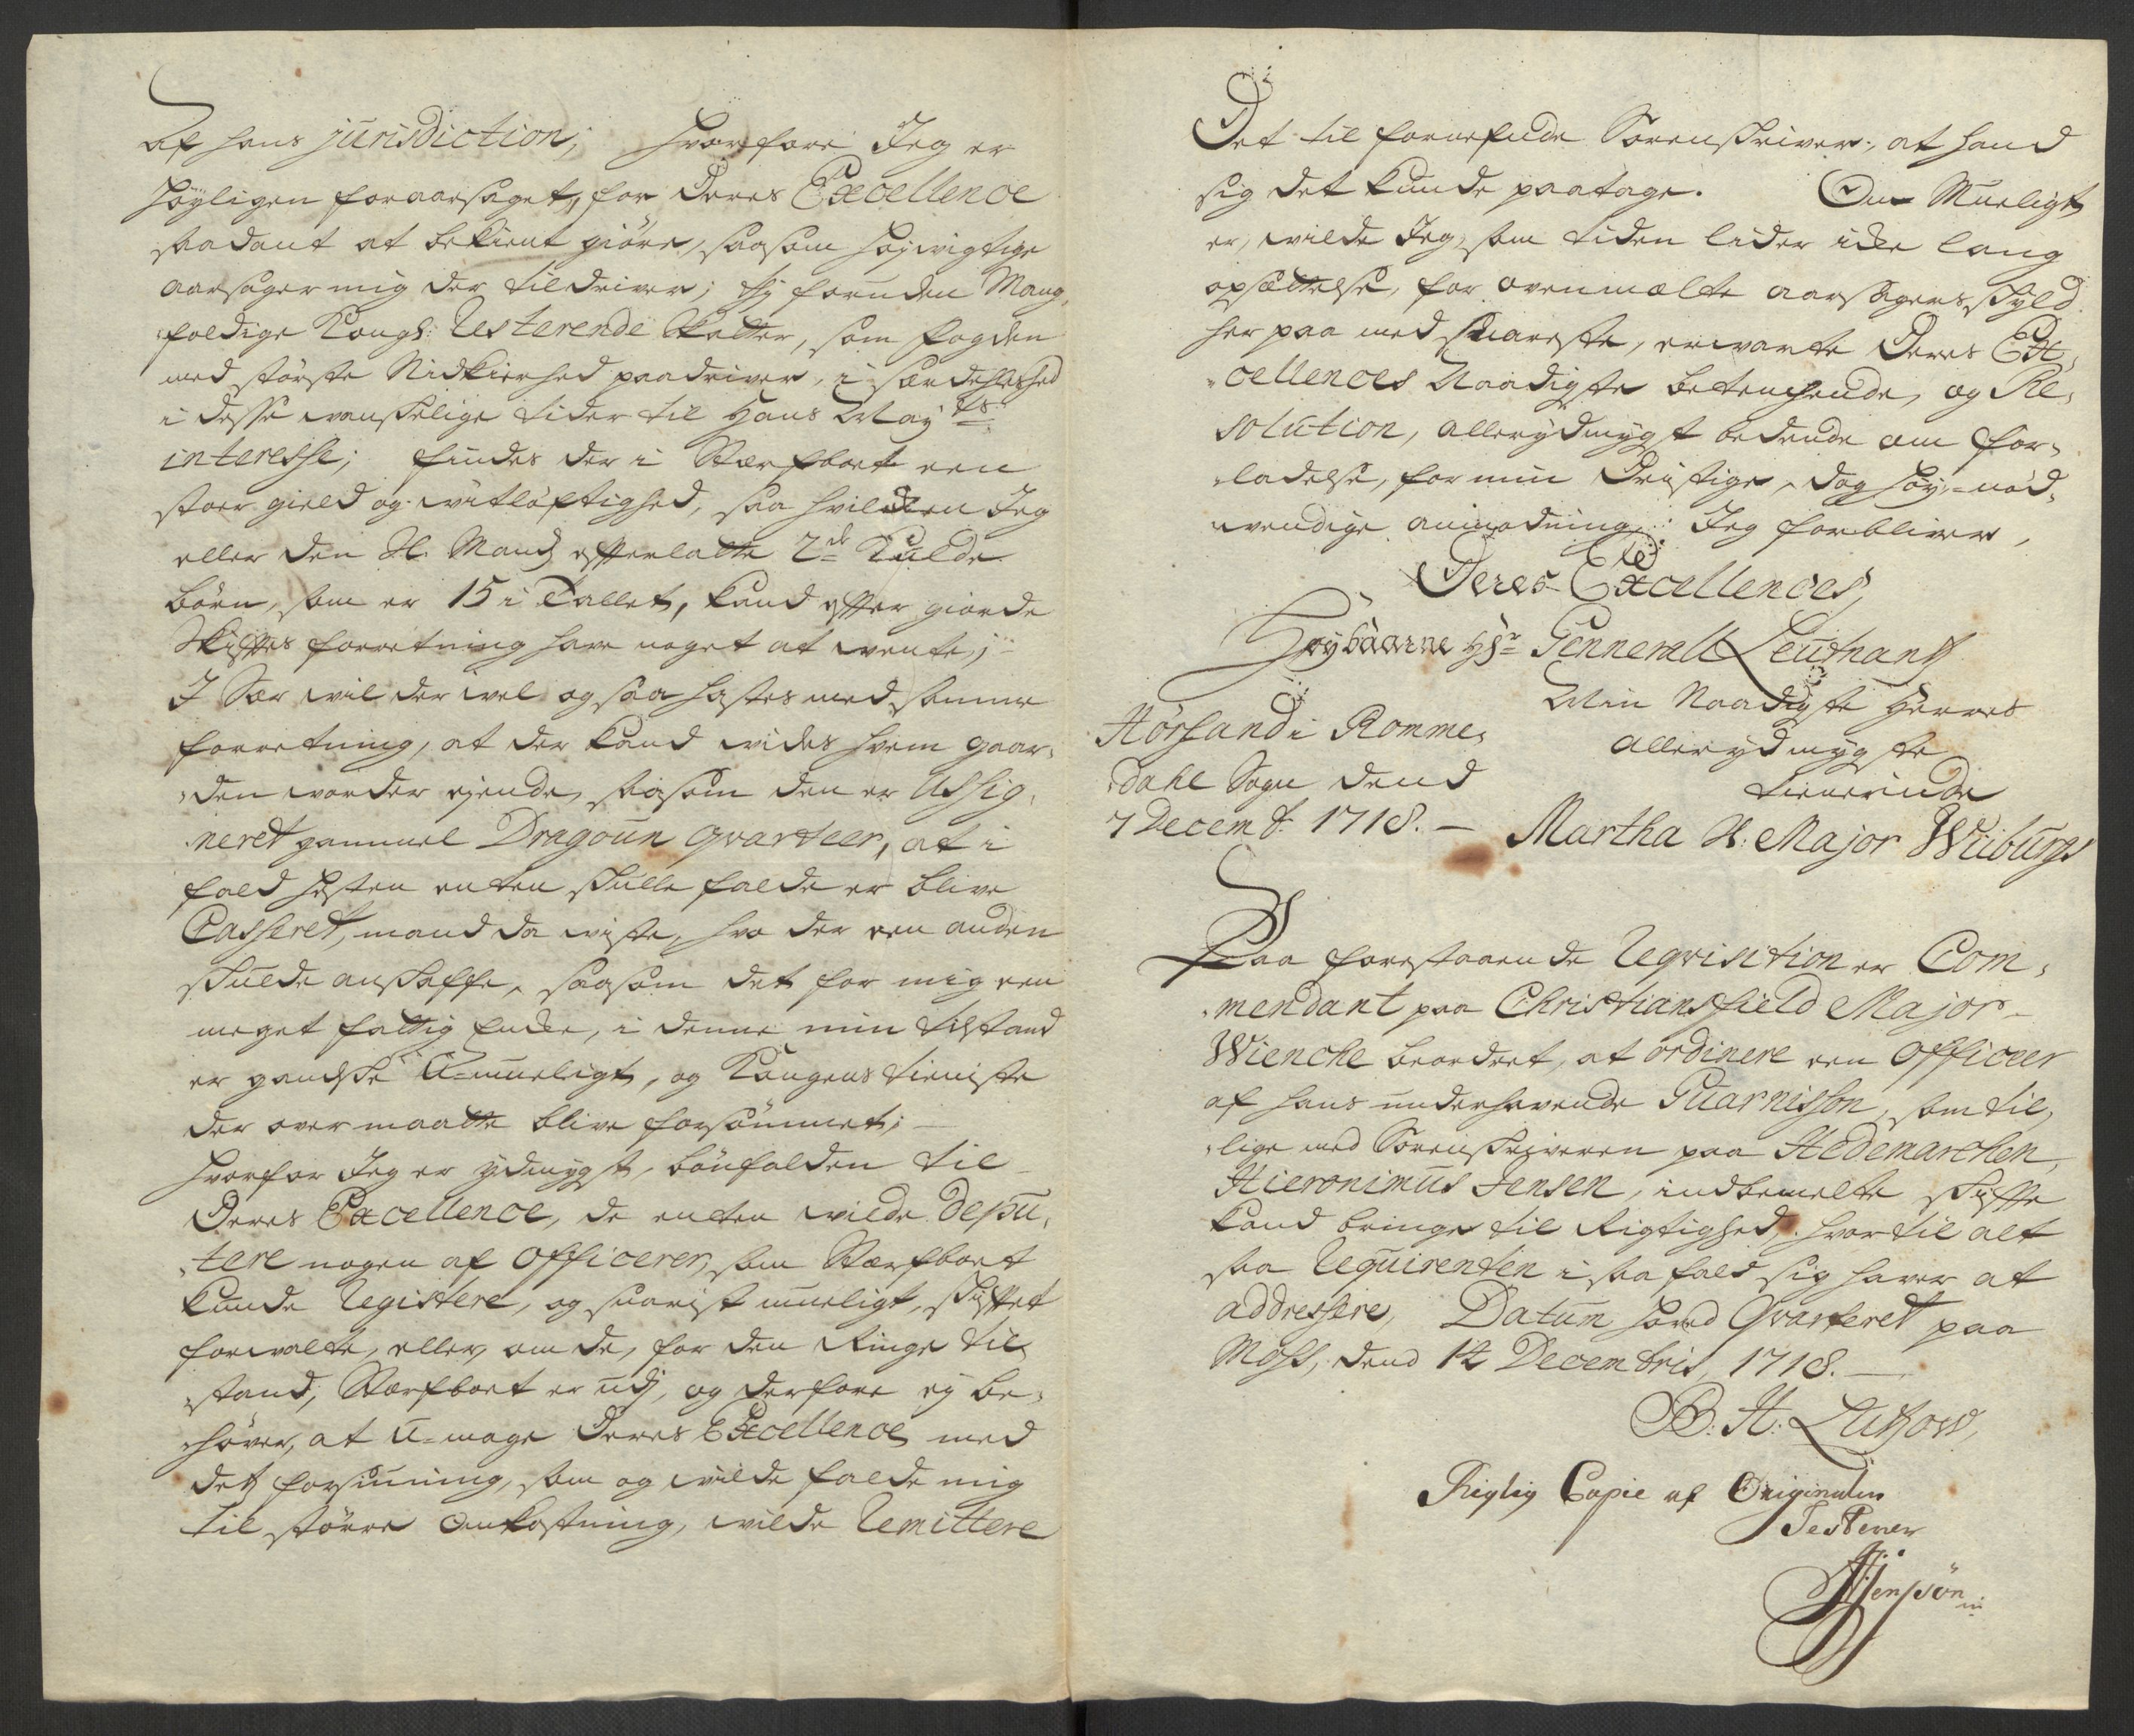 Af hans jurisdiction; Hvorfore Jeg er
høyligen foraarsaget, for Deres Excellence
saadant at bekient giöre, saasom höjvigtige
aarsager mig der tildriver; thj foruden Mang,
foldige Kongl: Resterende Skatter, som fogden
med störste Nidkierhed paadriver, i særdehleshed
i desse vanskelige tider til Hans Maÿ ts:
interesse; findes der i Stærfboet een
stoer gield og witløftighed, saa hvilcken Jeg
eller den Sl. Mands efterlatte 2de Kulde
börn, som er 15 i Tallet, kand efter giorde
Skiftes forretning have noget at vente;
I Sær vil der vel og saa hastes med samme
forretning, at der kand vides hvem gaar,
den vorder ejende, saasom den er Assig,
neret gammel Dragoun qvarteer, at i
fald hesten enten skulle falde er blive
Casseret, mand da viste, hvo der een anden
skulde anskaffe, saasom det for mig een
meget fattig Encke, i denne min tilstand
er gandske U-mueligt, og Kongens tieniste
der over maatte blive forsömmet;
hvorfor Jeg er ÿdmÿgst, bönfalden til
Deres Excellence, de enten vilde Depu,
tere nogen af Officerer, som Stærfboet
kunde Registere, og snarist mueligt, skiftet
forvalte, eller, om de, for den Ringe til
stand, Stærfboet er udj, og derfore eÿ be,
höver, at U-mage Deres Excellence med
det forsiuning, som og vilde falde mig
til större Omkostning, vilde Remittere
Det til fornefnde Sorenskriver, at hand
sig det kunde paatage. Om Mueligt
er, vilde Jeg, som tiden lider icke lang
opsættelse, for ovenmælte aarsagers skÿld
her paa med snareste, ervarte Deres Ex,
cellences Naadigste betenchende, og Re,
solution, allerÿdmÿgst bedende om for,
ladelse, for min Dristige, dog höÿ-nöd,
vendige anmodning: Jeg forbliver,
Deres Excellences,
Höybaarne Hr: Gennerall Leuthnants
Min Naadigste Herres
Hörsand i Romme,
allerÿdmÿgste
dahl Sogn dend
tienerinde
7 Decemb: 1718. –
Martha Sl: Major Wiiburgs
Paa forestaaende Reqvisition er Com,
mendant paa Christiansfield Major
Wiencke beordret, at ordinere een Officeer
af hans underhavende Guarnisson, som til,
lige med Sorenskriveren paa Hedemarchen,
Hieronimus Jensen, indbemelte skifte
kand bringe til Rigtighed, hvortil alt
saa Requirenten i saa fald sig haver at
addressere, Datum Hoved Qvarteret paa
Moss, dend 12 Decembris, 1718. –
B: H: Lützow,
Rigtig Copie af Originalen
Testerer
HJensön